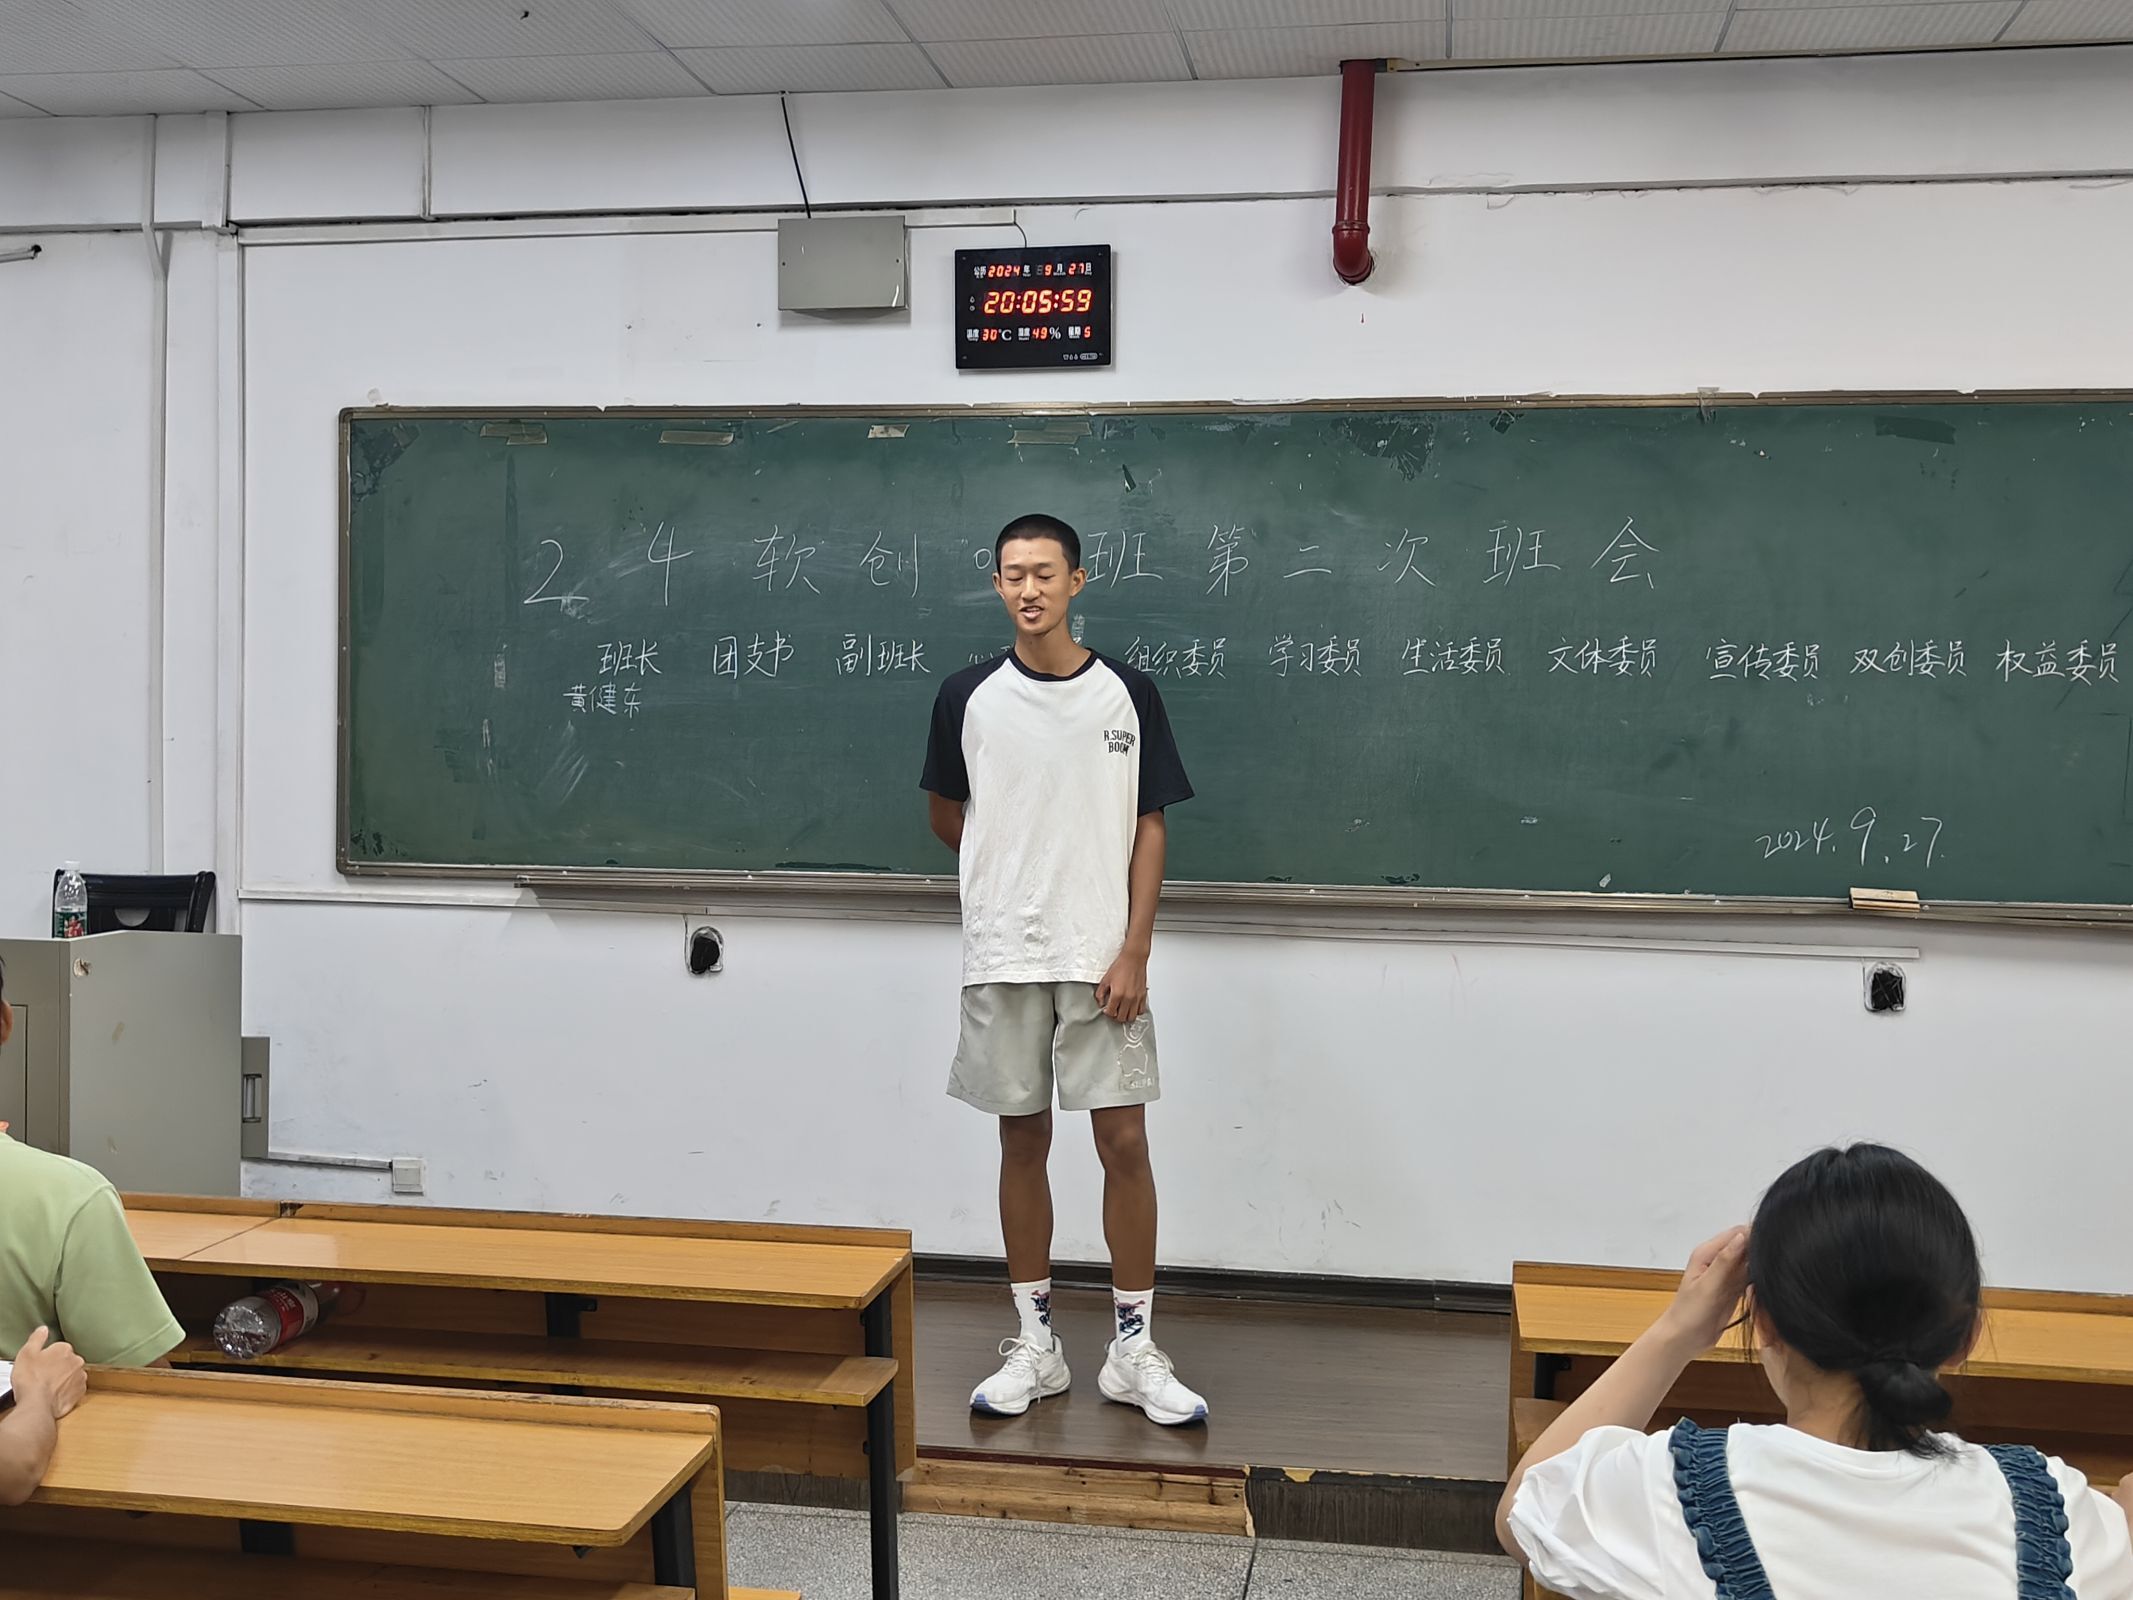 公历 2024 年 9 月 27 日
20:05:59
温度 30 ℃ 湿度 49 % 星期 5
24软创 班第二次班会
班长 团支书 副班长 组织委员 学习委员 生活委员 文体委员 宣传委员 双创委员 权益委员
黄健东
2024.9.27.
R.SUPER
BOOM